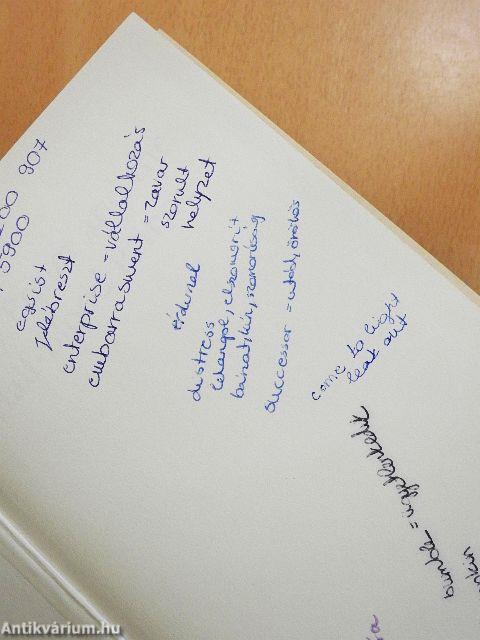 200 907
5900
egoist
felébreszt
enterprise = vállalkozás
embarrasment = zavar
szorult
helyzet
érdemel
distress
lehangol, elszomorít
bánat, kín, szomorúság
successor = utód, örökös
come to light
leak out
bumble = ügyetlenkedik
Antikvárium.hu